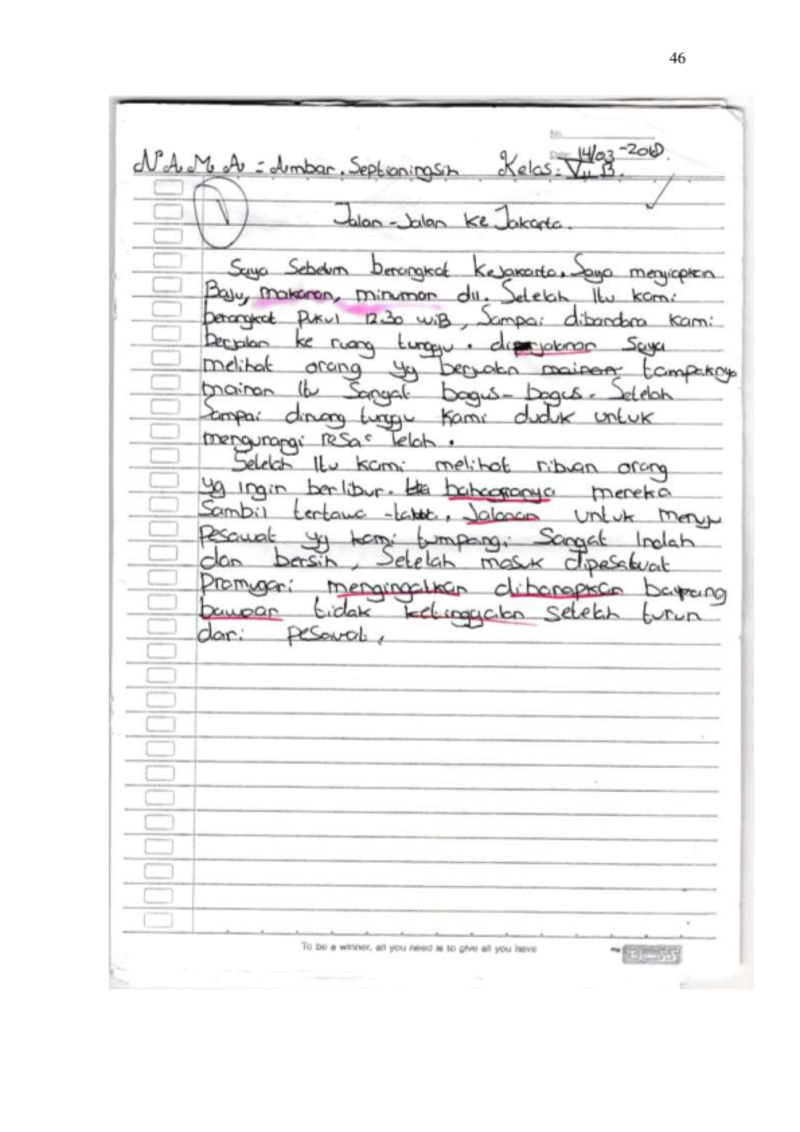 46
No.
Date. 14/03-20
N A M A = Ambar. Septianingsih Kelas: VII B.
1
Jalan-Jalan Ke Jakarta.
Saya Sebelum berangkat KeJakarta. Saya menyiapkan
Baju, makanan, minuman dll. Setelah Itu kami
berangkat Pukul 12.30 WIB, Sampai dibandara Kami
Berjalan ke ruang tunggu. diperjalanan Saya
melihat orang yg berjualan mainan tampaknya
mainan Itu Sangat bagus-bagus. Setelah
Sampai diruang tunggu Kami duduk untuk
mengurangi rasa lelah.
Setelah Itu kami melihat ribuan orang
yg Ingin berlibur. bahagianya mereka
Sambil tertawa-. Jalanan untuk menuju
Pesawat yg kami tumpangi Sangat Indah
dan bersih, Setelah masuk dipesawat
Pramugari mengingatkan diharapkan barang
bawaan tidak ketinggalan setelah turun
dari Pesawat,
To be a winner, all you need is to give all you have